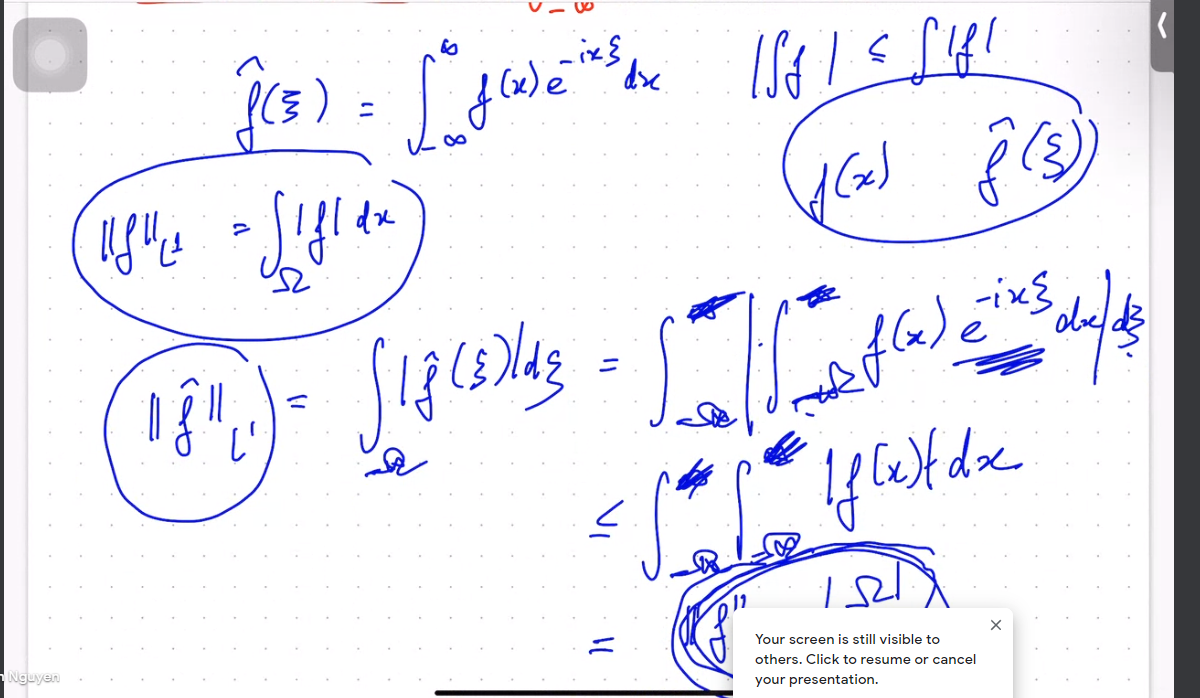 f̂(ξ) = ∫_{-∞}^{∞} f(x) e^{-ixξ} dx
|∫f| ≤ ∫|f|
f(x) f̂(ξ)
‖f‖_{L¹} = ∫_Ω |f| dx
‖f̂‖_{L¹} = ∫_Ω |f̂(ξ)| dξ = ∫_Ω | ∫_Ω f(x) e^{-ixξ} dx | dξ
≤ ∫_Ω ∫_Ω |f(x)| dx
= ‖f‖ |Ω|
Your screen is still visible to
others. Click to resume or cancel
your presentation.
Nguyen